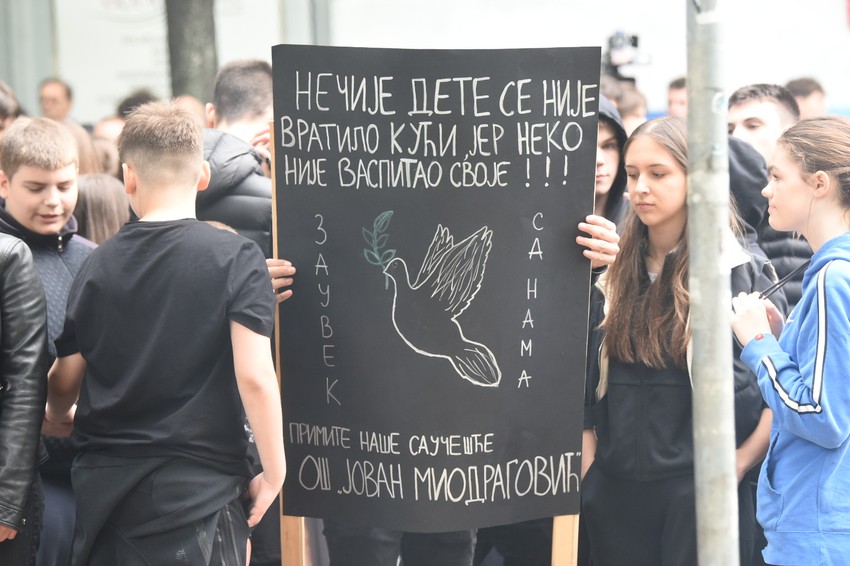 НЕЧИЈЕ ДЕТЕ СЕ НИЈЕ
ВРАТИЛО КУЋИ, ЈЕР НЕКО
НИЈЕ ВАСПИТАО СВОЈЕ !!!
ЗАУВЕК
СА НАМА
ПРИМИТЕ НАШЕ САУЧЕШЋЕ
ОШ „ЈОВАН МИОДРАГОВИЋ"